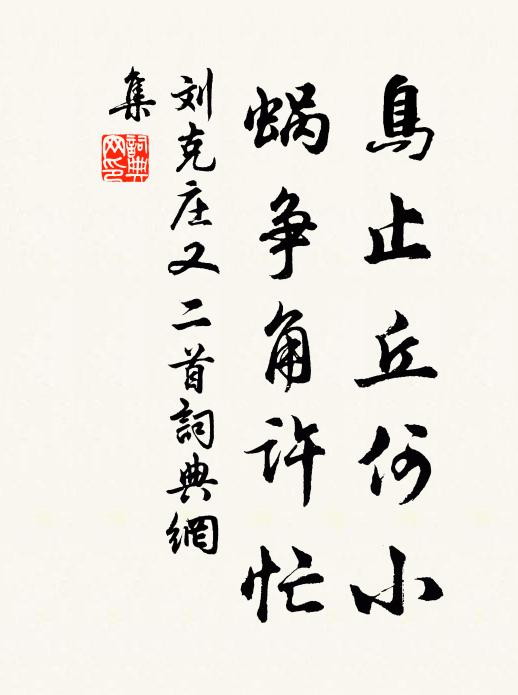 鳥止丘何小
蝸争角许忙
刘克庄又二首詞典網
集
詞典
网印